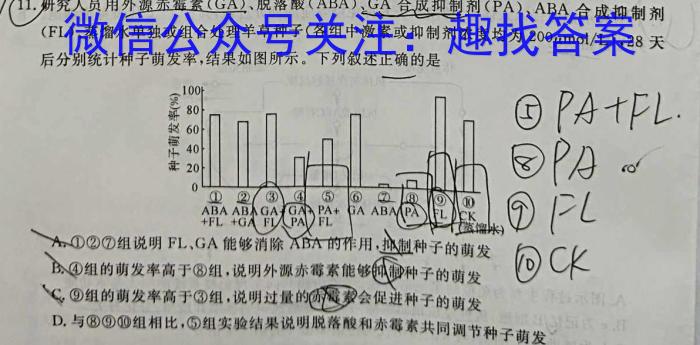 11.研究人员用外源赤霉素(GA)、脱落酸(ABA)、GA 合成抑制剂(PA)、ABA 合成抑制剂
(FL)、蒸馏水单独或组合处理
28 天
微信公众号关注：趣找答案
后分别统计种子萌发率,结果如图所示。下列叙述正确的是
种子萌发率(%)
100
80
60
40
20
0
① ② ③ ④ ⑤ ⑥ ⑦ ⑧ ⑨ ⑩
ABA ABA GA+ GA+ PA+ GA ABA PA FL CK
+FL +GA FL PA FL (蒸馏水)
A. ①②⑦组说明 FL、GA 能够消除 ABA 的作用,抑制种子的萌发
B. ④组的萌发率高于⑧组,说明外源赤霉素能够抑制种子的萌发
C. ⑨组的萌发率高于③组,说明过量的赤霉素会促进种子的萌发
D. 与⑧⑨⑩组相比,⑤组实验结果说明脱落酸和赤霉素共同调节种子萌发
⑤ PA+FL.
⑧ PA
⑨ FL
⑩ CK